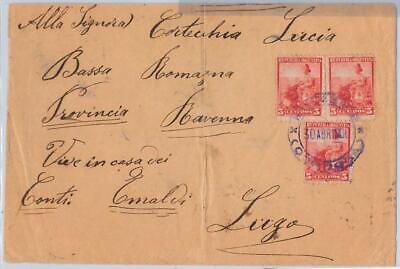 Alla Signora Cortecchia Lucia
Bassa Romagna
Provincia Ravenna
Vive in casa dei
Conti Emaldi
Lugo
REPUBLICA ARGENTINA
5 CENTAVOS 5
REPUBLICA ARGENTINA
5 CENTAVOS 5
30 ABR
REPUBLICA ARGENTINA
5 CENTAVOS 5